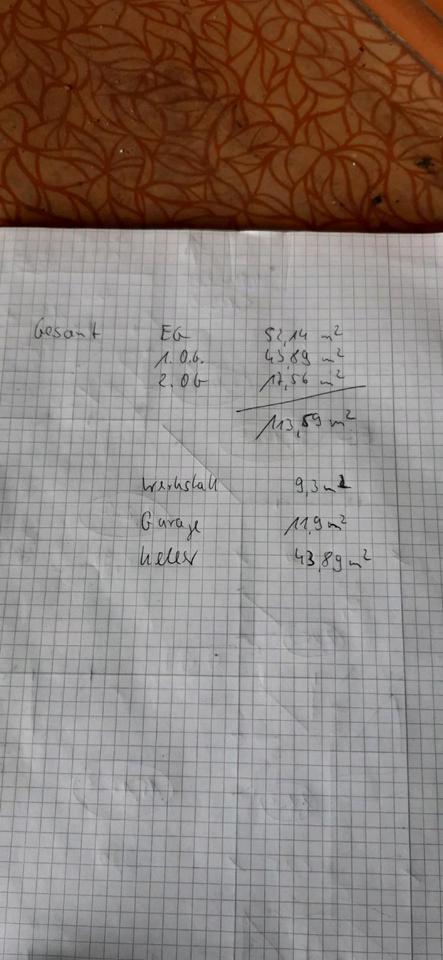 Gesamt EG 52,14 m²
1. OG. 43,89 m²
2. OG 17,56 m²
113,59 m²
Werkstatt 9,3 m²
Garage 11,9 m²
Keller 43,89 m²